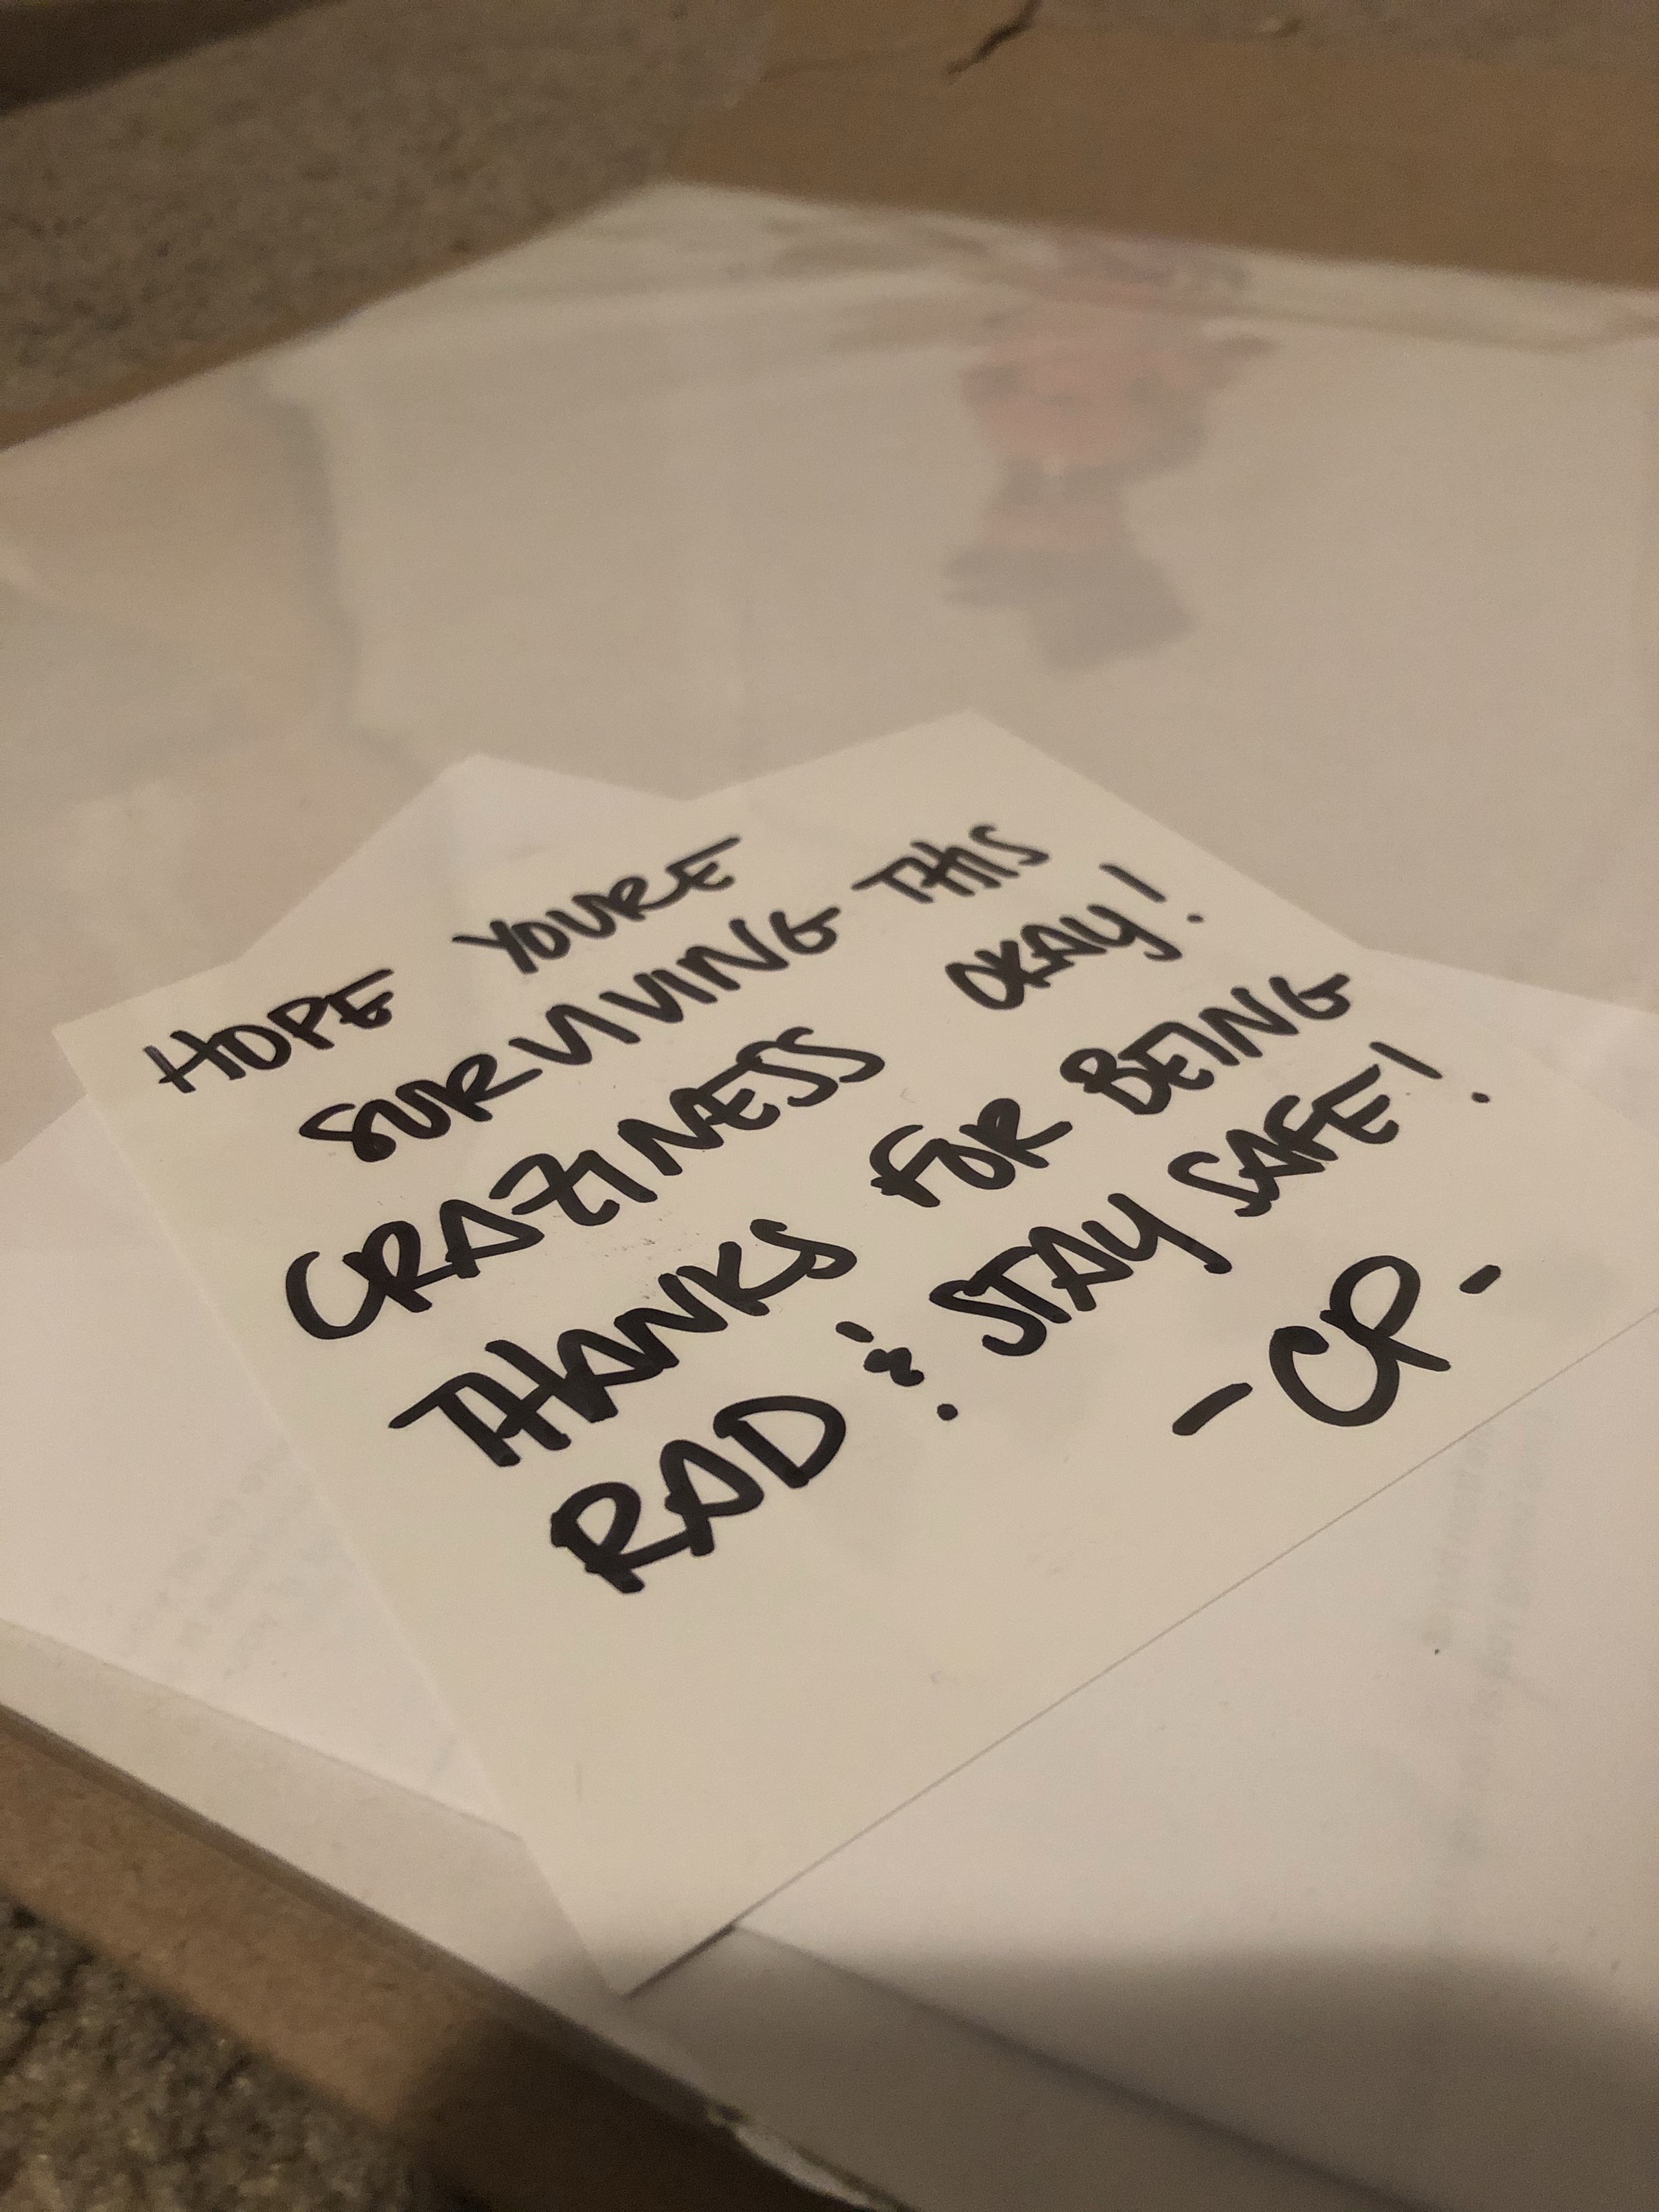 HOPE YOURE
SURVIVING THIS
CRAZINESS OKAY!
THANKS FOR BEING
RAD & STAY SAFE!
-CP-